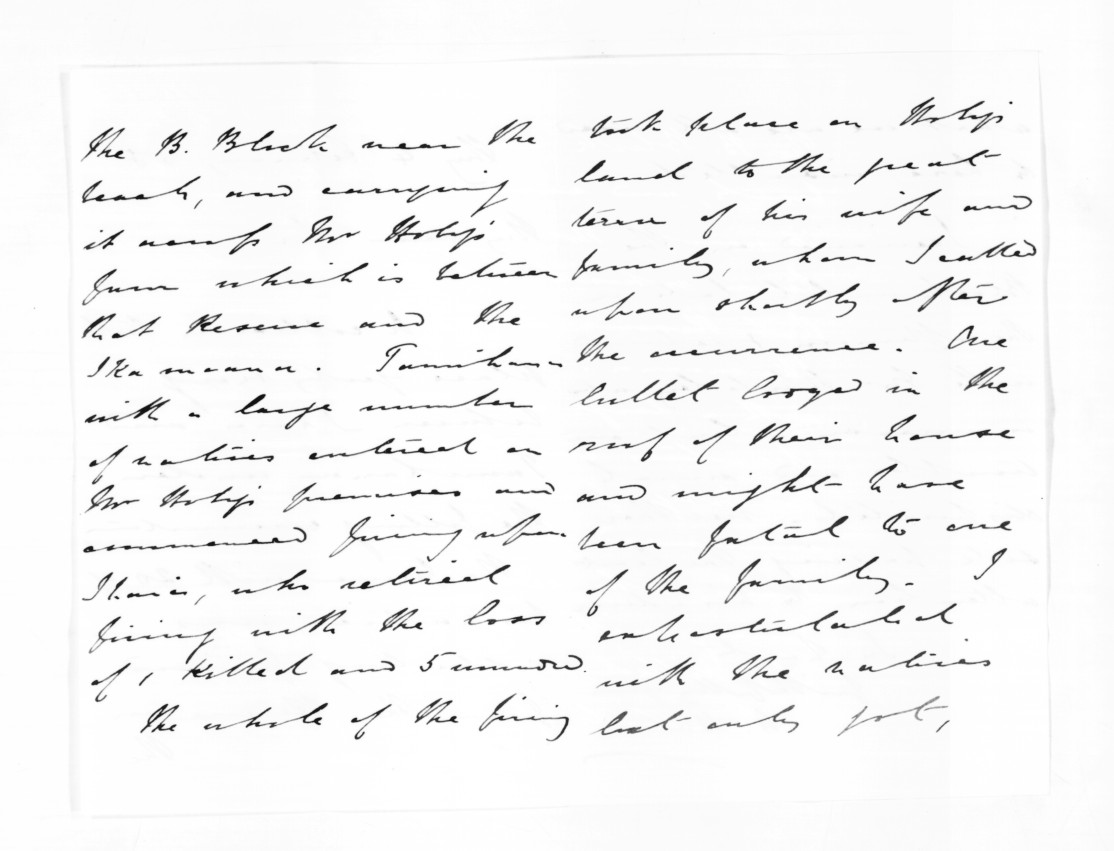 the B. Block near the
beach, and carrying
it across Mr Holy's
farm which is between
that Reserve and the
Ikamoana. Tamihana
with a large number
of natives entered on
Mr Holy's premises and
commenced firing upon
Ihaia, who retired
firing with the loss
of 1 Killed and 5 wounded.
The whole of the firing
took place on Holy's
land to the great
terror of his wife and
family, whom I called
upon shortly after
the occurrence. One
bullet lodged in the
roof of their house
and might have
been fatal to one
of the family. I
expostulated
with the natives
but only got,